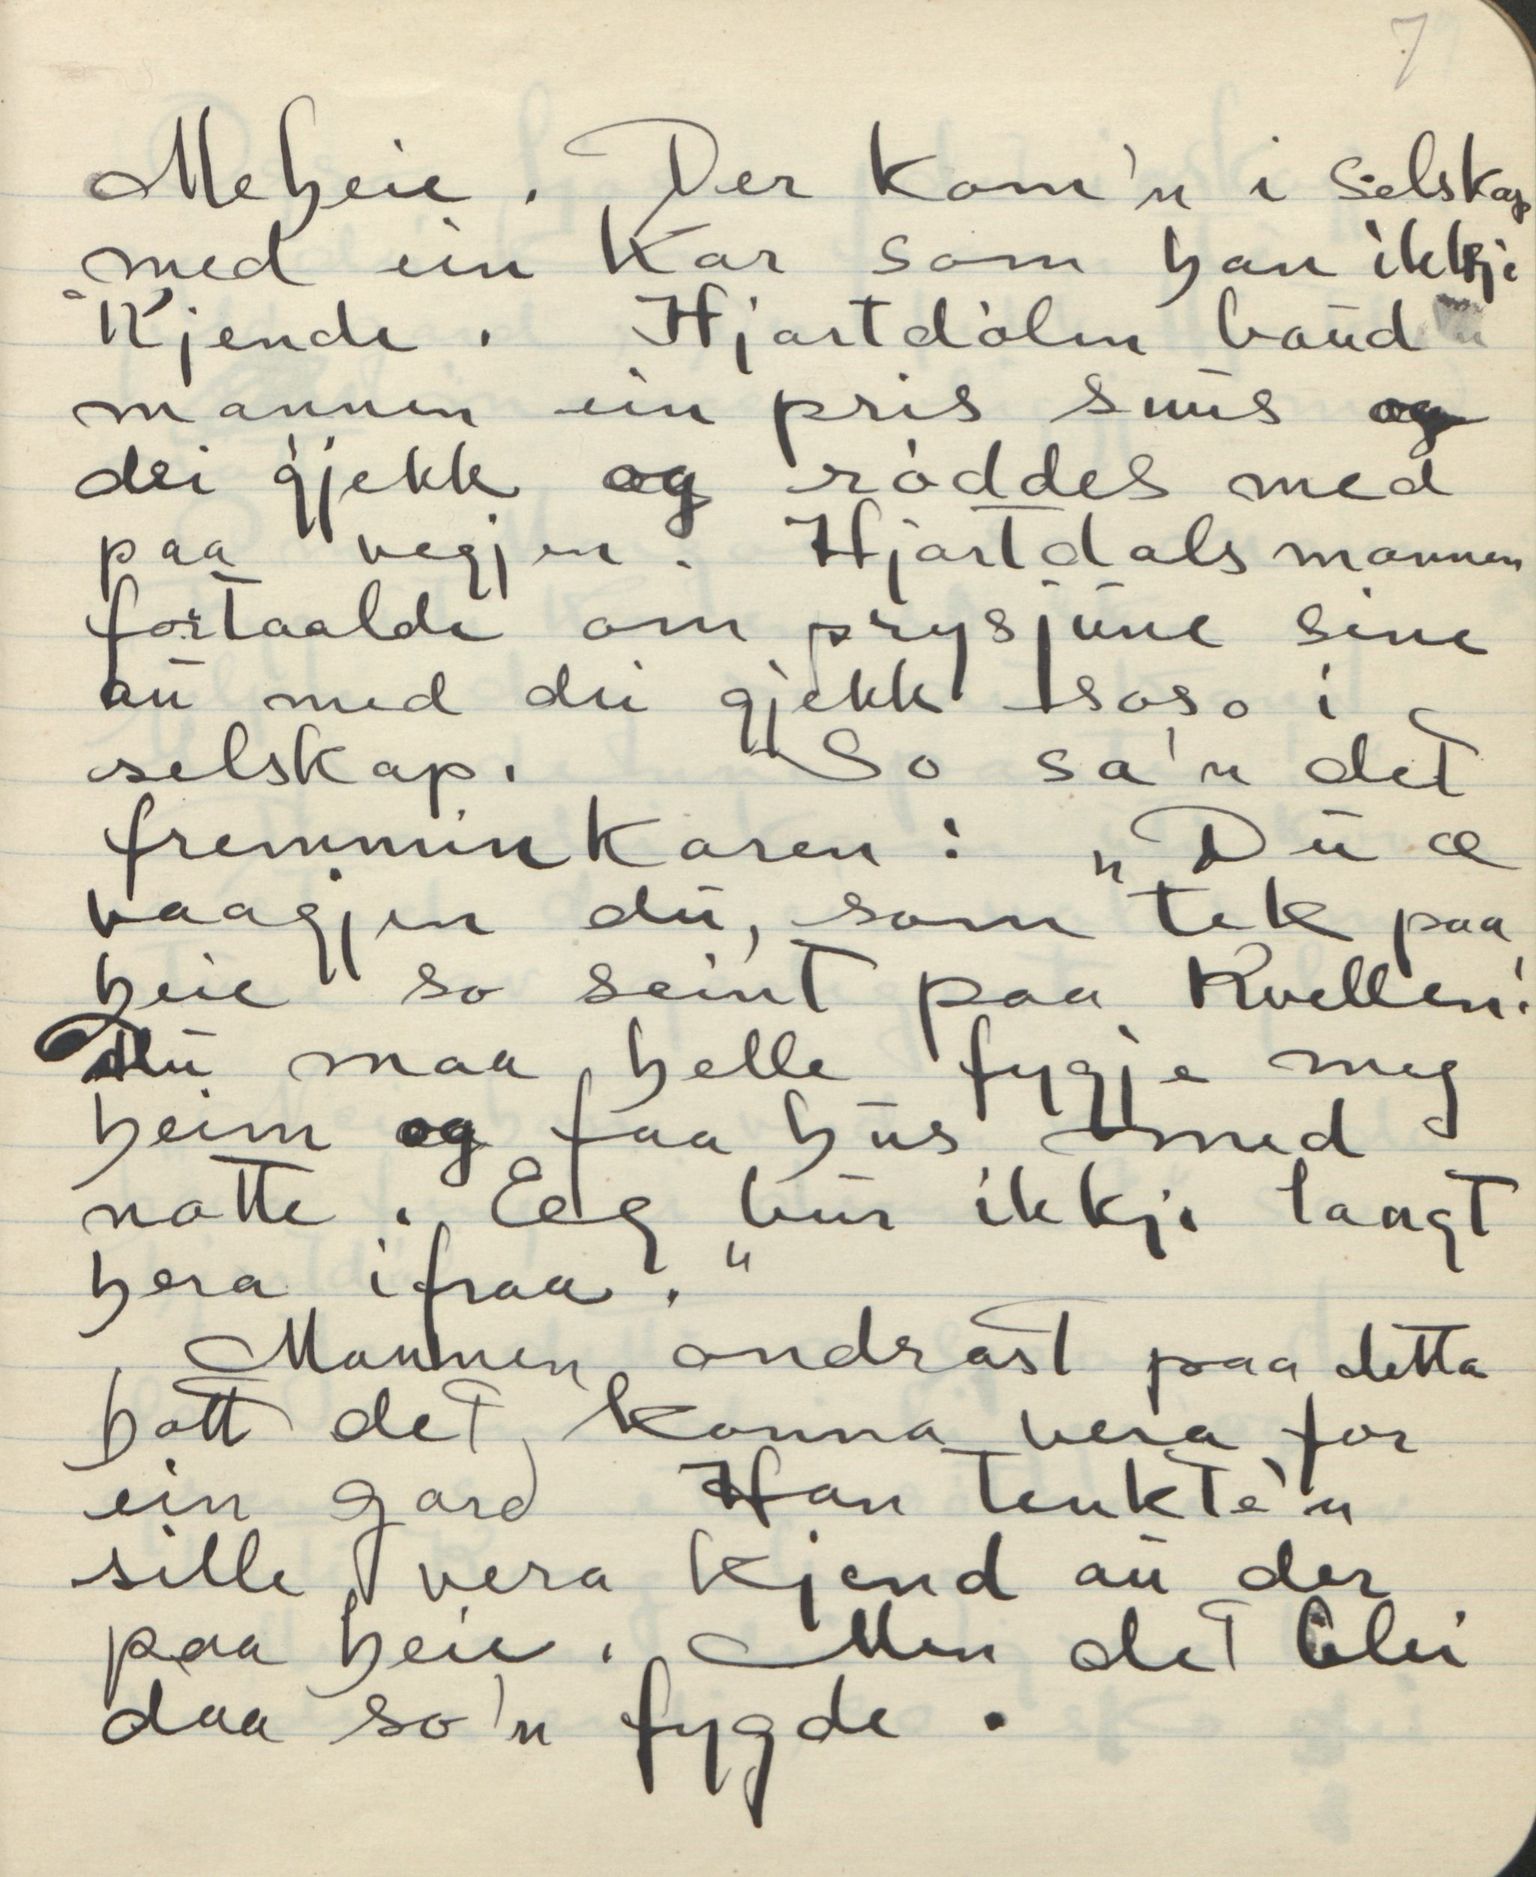 7
Meheie. Der kom'n i selskap
med ein kar som han ikkje
kjende. Hjartdølen baud
mannen ein pris snus og
dei gjekk og røddes med
paa vegjen. Hjartdalsmannen
fortaalde om prysjune sine
au med dei gjekk soso i
selskap. So sa'n det
fremminkaren: "Du æ
vaagjen du, som tek paa
heie so seint paa kvellen!
Du maa helle fygje meg
heim og faa hus med
natte. Eeg bur ikkje laagt
hera ifraa."
Mannen ondrast paa detta
hott det konna vera for
ein gard Han tenkte'n
sille vera kjend au der
paa heie. Men det blei
daa so'n fygde.